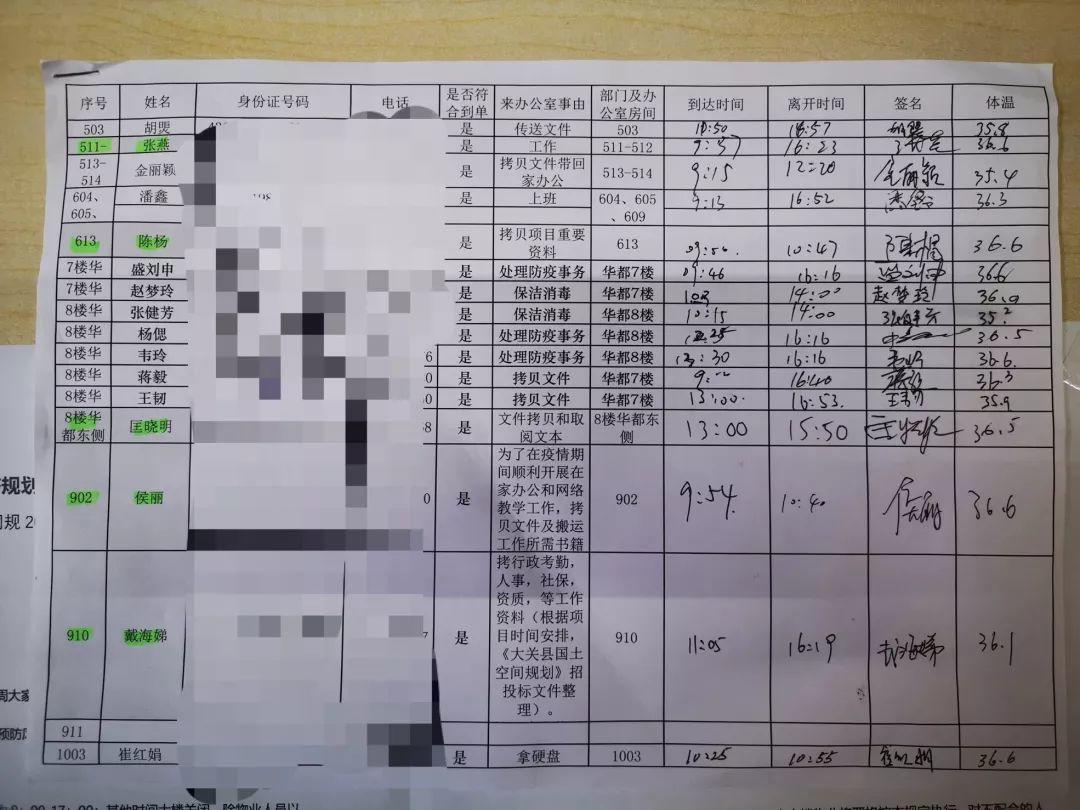 序号 姓名 身份证号码 电话 是否符合到单 来办公室事由 部门及办公室房间 到达时间 离开时间 签名 体温
503 胡煚 是 传送文件 503 16:57 35.8
511- 张燕 是 工作 511-512 9:37 16:23 36.6
513-514 金丽颖 是 拷贝文件带回家办公 513-514 9:15 12:20 金丽颖 35.4
604、605、 潘鑫 是 上班 604、605、609 9:13 16:52 潘鑫 36.3
613 陈杨 是 拷贝项目重要资料 613 10:47 陈杨 36.6
7楼华 盛刘申 是 处理防疫事务 华都7楼 09:46 16:16 盛刘申 36.6
7楼华 赵梦玲 是 保洁消毒 华都7楼 14:00 赵梦玲
8楼华 张健芳 是 保洁消毒 华都8楼 10:15 14:00 张健芳
8楼华 杨偲 是 处理防疫事务 华都8楼 16:16 36.5
8楼华 韦玲 6 是 处理防疫事务 华都8楼 13:30 16:16 韦玲 36.6
8楼华 蒋毅 0 是 拷贝文件 华都7楼 16:40 36.3
8楼华 王韧 0 是 拷贝文件 华都7楼 13:00 16:53 王韧 35.9
8楼华都东侧 匡晓明 8 是 文件拷贝和取阅文本 8楼华都东侧 13:00 15:50 36.5
902 侯丽 0 是 为了在疫情期间顺利开展在家办公和网络教学工作，拷贝文件及搬运工作所需书籍 902 9:54 10:40 侯丽 36.6
910 戴海娣 7 是 拷行政考勤，人事，社保，资质，等工作资料（根据项目时间安排，《大关县国土空间规划》招投标文件整理）。 910 11:05 16:19 戴海娣 36.1
911
1003 崔红娟 是 拿硬盘 1003 10:25 10:55 崔红娟 36.6
规划
司规 2
周大家
预防